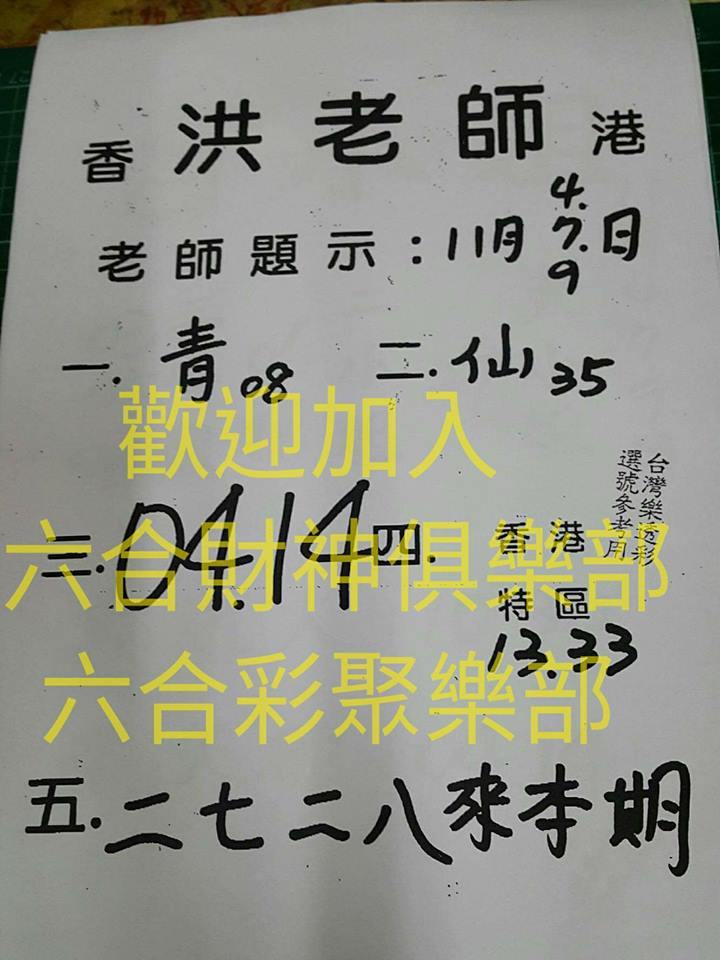 香洪老師港
老師題示:11月4.7.9日
一.青08 二.仙35
歡迎加入
台灣樂透彩
選號參考用
三.04.14 四.香港
特區
13.33
六合財神俱樂部
六合彩聚樂部
五.二七二八來本期